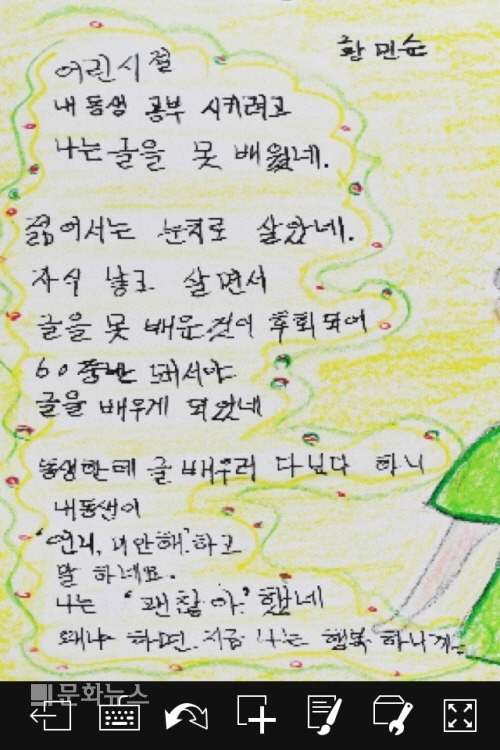 황민순
어린시절
내 동생 공부 시키려고
나는 글을 못 배웠네.
젊어서는 눈치로 살았네.
자식 낳고 살면서
글을 못 배운것이 후회되어
60 중반 되서야
글을 배우게 되었네
동생한테 글 배우러 다닌다 하니
내동생이
'언니, 미안해.' 하고
말 하네요.
나는 '괜찮아' 했네
왜냐 하면, 지금 나는 행복 하니까.
문화뉴스